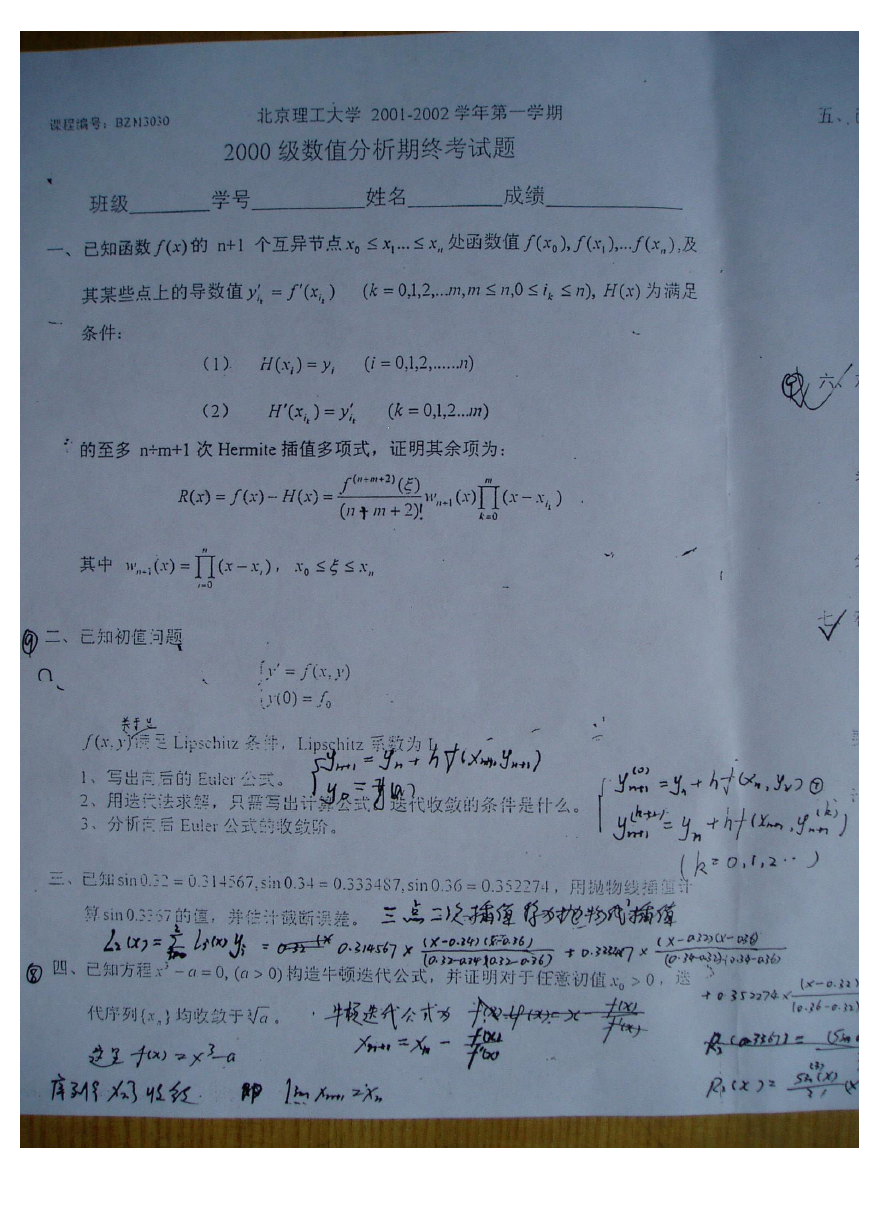 课程编号：BZN3030
北京理工大学 2001-2002 学年第一学期
2000 级数值分析期终考试题
班级________学号__________姓名________成绩____________
一、已知函数 f(x) 的 n+1 个互异节点 x₀ ≤ x₁... ≤ xₙ 处函数值 f(x₀), f(x₁),...f(xₙ),及
其某些点上的导数值 y′_{i_k} = f′(x_{i_k}) (k = 0,1,2,...m, m ≤ n, 0 ≤ i_k ≤ n), H(x) 为满足
条件：
（1） H(xᵢ) = yᵢ (i = 0,1,2,......n)
（2） H′(x_{i_k}) = y′_{i_k} (k = 0,1,2...m)
的至多 n+m+1 次 Hermite 插值多项式，证明其余项为：
R(x) = f(x) − H(x) = \frac{f^{(n+m+2)}(ξ)}{(n+m+2)!} w_{n+1}(x) ∏_{k=0}^{m} (x − x_{i_k})
其中 w_{n+1}(x) = ∏_{i=0}^{n} (x − xᵢ)， x₀ ≤ ξ ≤ xₙ
⑨ 二、已知初值问题
{ y′ = f(x, y)
y(0) = f₀
关于 y
f(x, y)满足 Lipschitz 条件，Lipschitz 系数为 L
{ y_{n+1} = y_n + h f(x_{n+1}, y_{n+1})
1、写出向后的 Euler 公式。
2、用迭代法求解，只需写出计算公式，迭代收敛的条件是什么。
3、分析向后 Euler 公式的收敛阶。
{ y_{n+1}^{(0)} = y_n + h f(x_n, y_n)
y_{n+1}^{(k+1)} = y_n + h f(x_{n+1}, y_{n+1}^{(k)})
(k = 0,1,2··)
三、已知 sin 0.32 = 0.314567, sin 0.34 = 0.333487, sin 0.36 = 0.352274，用抛物线插值计
算 sin 0.3367 的值，并估计截断误差。 三点二次插值 称为抛物线插值
L₂(x) = ∑ lᵢ(x) yᵢ = 0.314567 × \frac{(x−0.34)(x−0.36)}{(0.32−0.34)(0.32−0.36)} + 0.333487 × \frac{(x−0.32)(x−0.36)}{(0.34−0.32)(0.34−0.36)}
+ 0.352274 × \frac{(x−0.32)}{(0.36−0.32)}
⑧ 四、已知方程 x³ − a = 0, (a > 0) 构造牛顿迭代公式，并证明对于任意初值 x₀ > 0，迭
代序列{xₙ}均收敛于∛a。 牛顿迭代公式为
x_{n+1} = x_n − \frac{f(x)}{f′(x)}
这里 f(x) = x³ − a
R₂(0.3367) =
R₂(x) =
即 lim x_{n+1} = x_n
五、
六、
七、